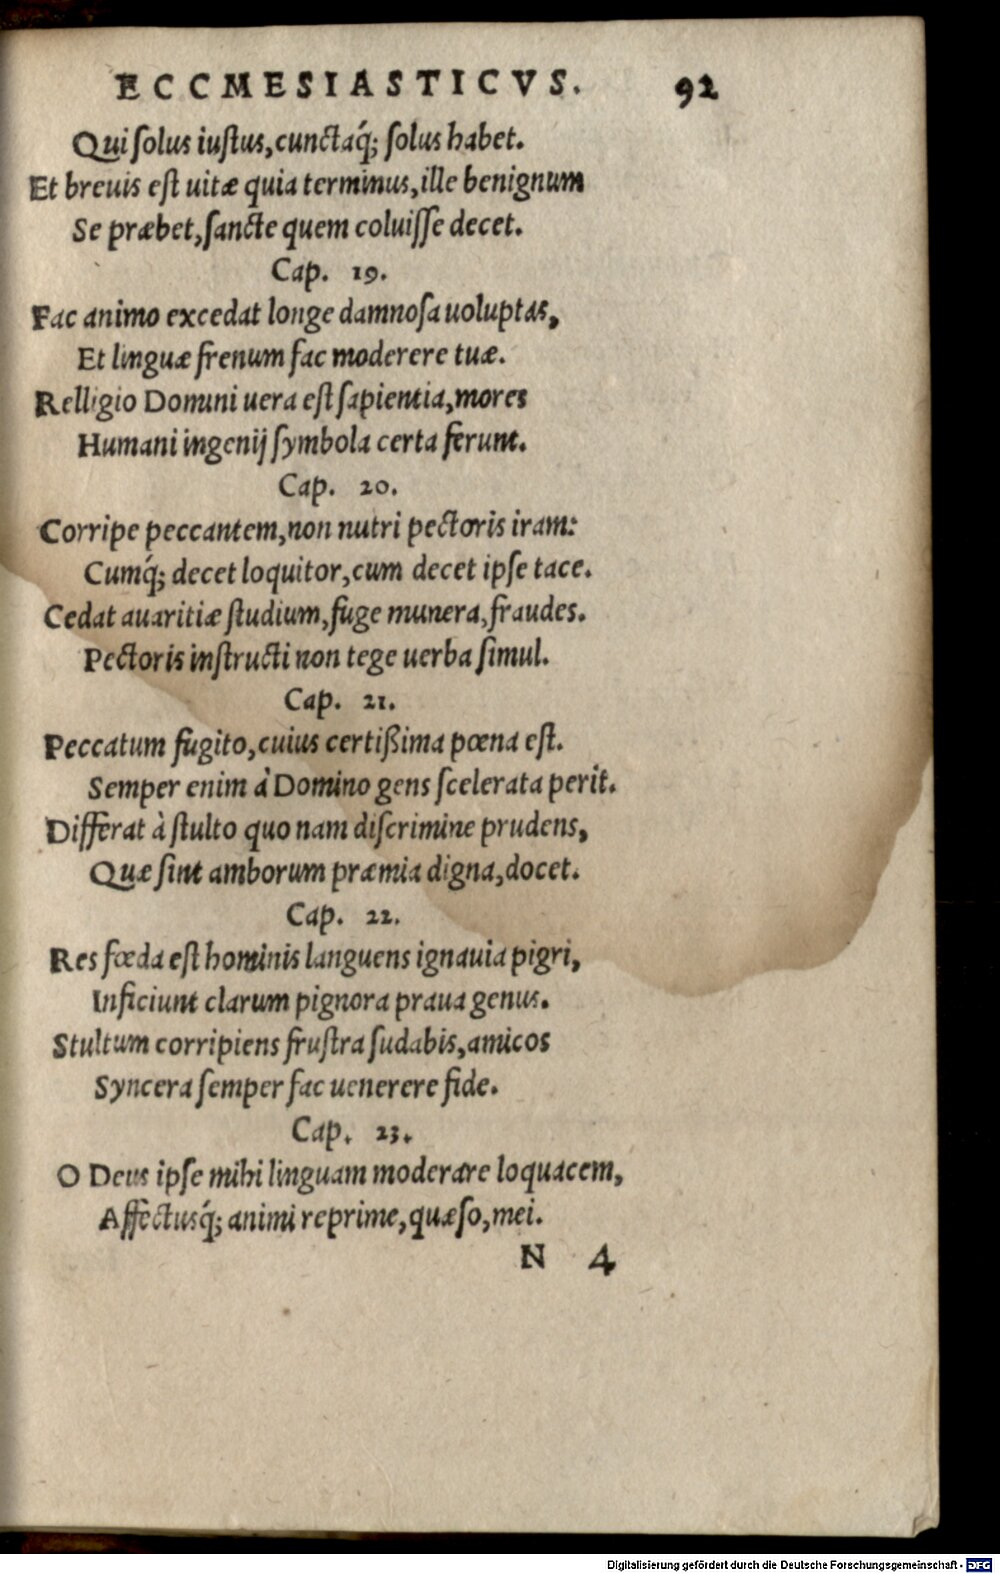 ECCMESIASTICVS. 92
Qui ſolus iuſtus, cunctaq́; ſolus habet.
Et breuis eſt uitæ quia terminus, ille benignum
Se præbet, ſancte quem coluiſſe decet.
Cap. 19.
Fac animo excedat longe damnoſa uoluptas,
Et linguæ frenum fac moderere tuæ.
Relligio Domini uera eſt ſapientia, mores
Humani ingenij ſymbola certa ferunt.
Cap. 20.
Corripe peccantem, non nutri pectoris iram:
Cumq́; decet loquitor, cum decet ipſe tace.
Cedat auaritiæ ſtudium, fuge munera, fraudes.
Pectoris inſtructi non tege uerba ſimul.
Cap. 21.
Peccatum fugito, cuius certißima pœna eſt.
Semper enim à Domino gens ſcelerata perit.
Differat à ſtulto quo nam diſcrimine prudens,
Quæ ſint amborum præmia digna, docet.
Cap. 22.
Res fœda eſt hominis languens ignauia pigri,
Inficiunt clarum pignora praua genus.
Stultum corripiens fruſtra ſudabis, amicos
Syncera ſemper fac uenerere fide.
Cap. 23.
O Deus ipſe mihi linguam moderare loquacem,
Affectusq́; animi reprime, quæſo, mei.
N 4
Digitalisierung gefördert durch die Deutsche Forschungsgemeinschaft - DFG